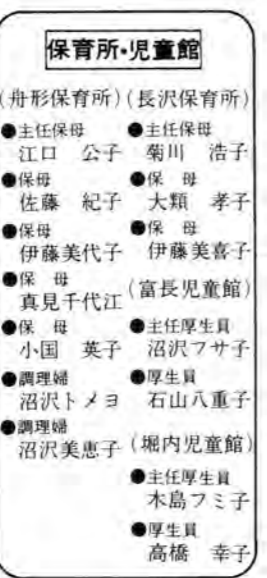 保育所・児童館
(舟形保育所)
●主任保母
江口 公子
●保母
佐藤 紀子
●保母
伊藤美代子
●保 母
真見千代江
●保 母
小国 英子
●調理婦
沼沢トメヨ
●調理婦
沼沢美恵子
(長沢保育所)
●主任保母
菊川 浩子
●保 母
大類 孝子
●保 母
伊藤美喜子
(富長児童館)
●主任厚生員
沼沢フサ子
●厚生員
石山八重子
(堀内児童館)
●主任厚生員
木島フミ子
●厚生員
高橋 幸子